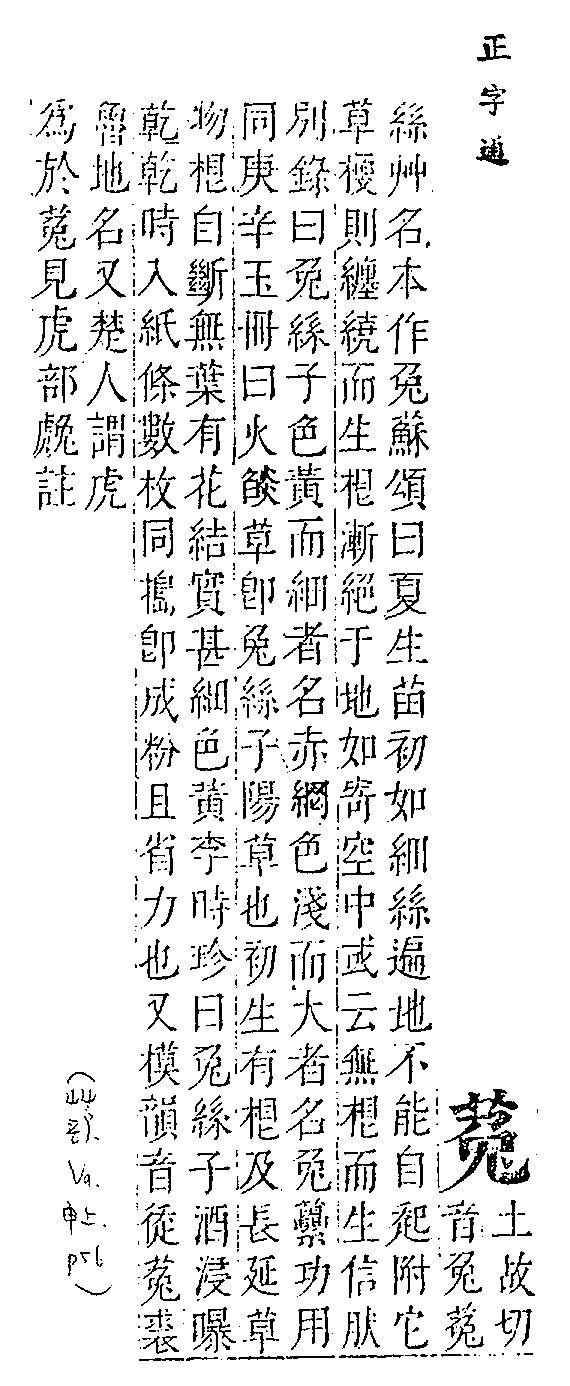 正字通
菟
土故切
音兔菟
絲艸名本作兔蘇頌曰夏生苗初如細絲遍地不能自起附它
草梗則纏繞而生根漸絕于地如寄空中或云無根而生信肰
別錄曰兔絲子色黃而細者名赤網色淺而大者名兔虆功用
同庚辛玉冊曰火燄草卽兔絲子陽草也初生有根及長延草
物根自斷無葉有花結實甚細色黃李時珍曰兔絲子酒浸曝
乾乾時入紙條數枚同擣卽成粉且省力也又模韻音徒菟裘
魯地名又楚人謂虎
爲於菟見虎部虝註
(艸部 Va. 申上. p56)